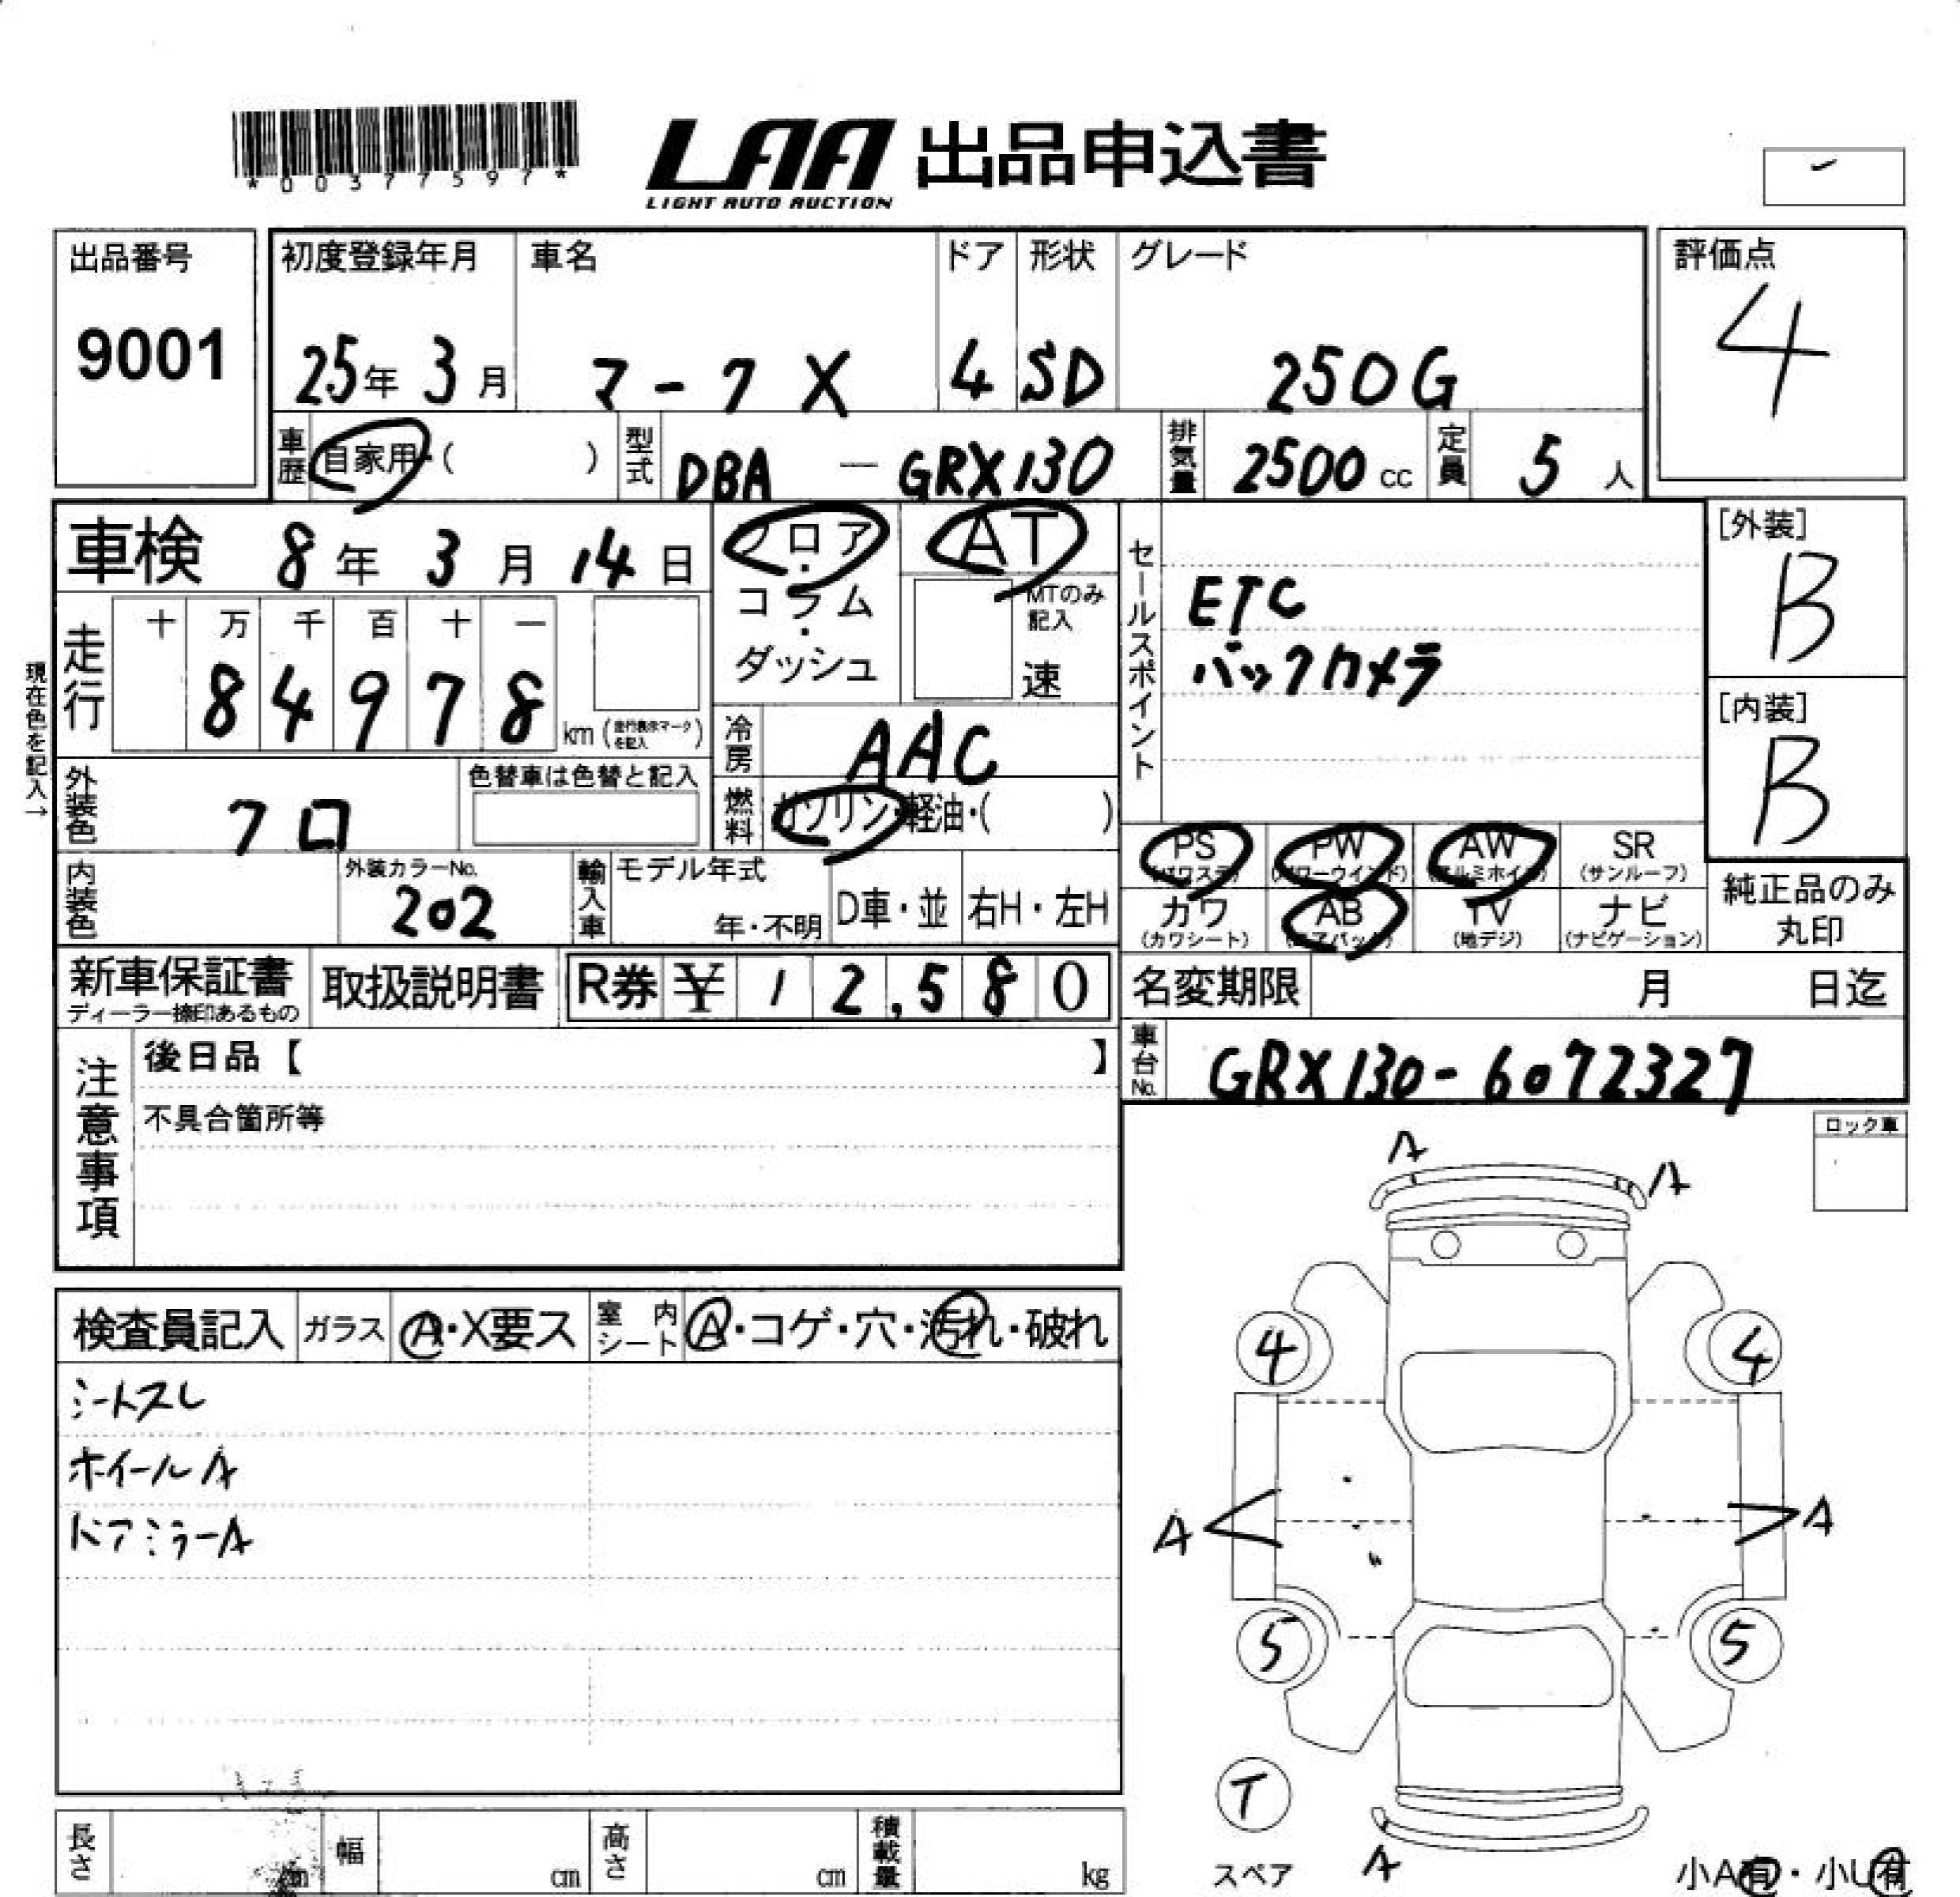 *00377597*
LAA 出品申込書
LIGHT AUTO AUCTION
出品番号 初度登録年月 車名 ドア 形状 グレード 評価点
9001 25年 3月 マーク X 4 SD 250G 4
車歴 自家用・( ) 型式 DBA — GRX130 排気量 2500 cc 定員 5 人
車検 8年 3月 14日 フロア・コラム・ダッシュ AT
MTのみ記入
速
走行 十 万 千 百 十 一
8 4 9 7 8 km (走行表示マークを記入)
現在色を記入→
冷房 AAC
燃料 ガソリン・軽油・( )
セールスポイント
ETC
バックカメラ
[外装]
B
[内装]
B
外装色 クロ 色替車は色替と記入
内装色 外装カラーNo. 202 輸入車 モデル年式 年・不明 D車・並 右H・左H
PS (パワステ) PW (パワーウインド) AW (アルミホイル) SR (サンルーフ)
カワ (カワシート) AB (エアバック) TV (地デジ) ナビ (ナビゲーション)
純正品のみ
丸印
新車保証書 ディーラー捺印あるもの 取扱説明書 R券 ¥ 1 2,5 8 0 名変期限 月 日迄
車台No. GRX130-6072327
注意事項
後日品【 】
不具合箇所等
ロック車
A A
検査員記入 ガラス A・X要ス 室内シート A・コゲ・穴・汚れ・破れ
シートスレ
ホイールA
ドアミラーA
4 4
A A
5 5
T
スペア
A
小A有・小U有
長さ cm 幅 cm 高さ cm 積載量 kg